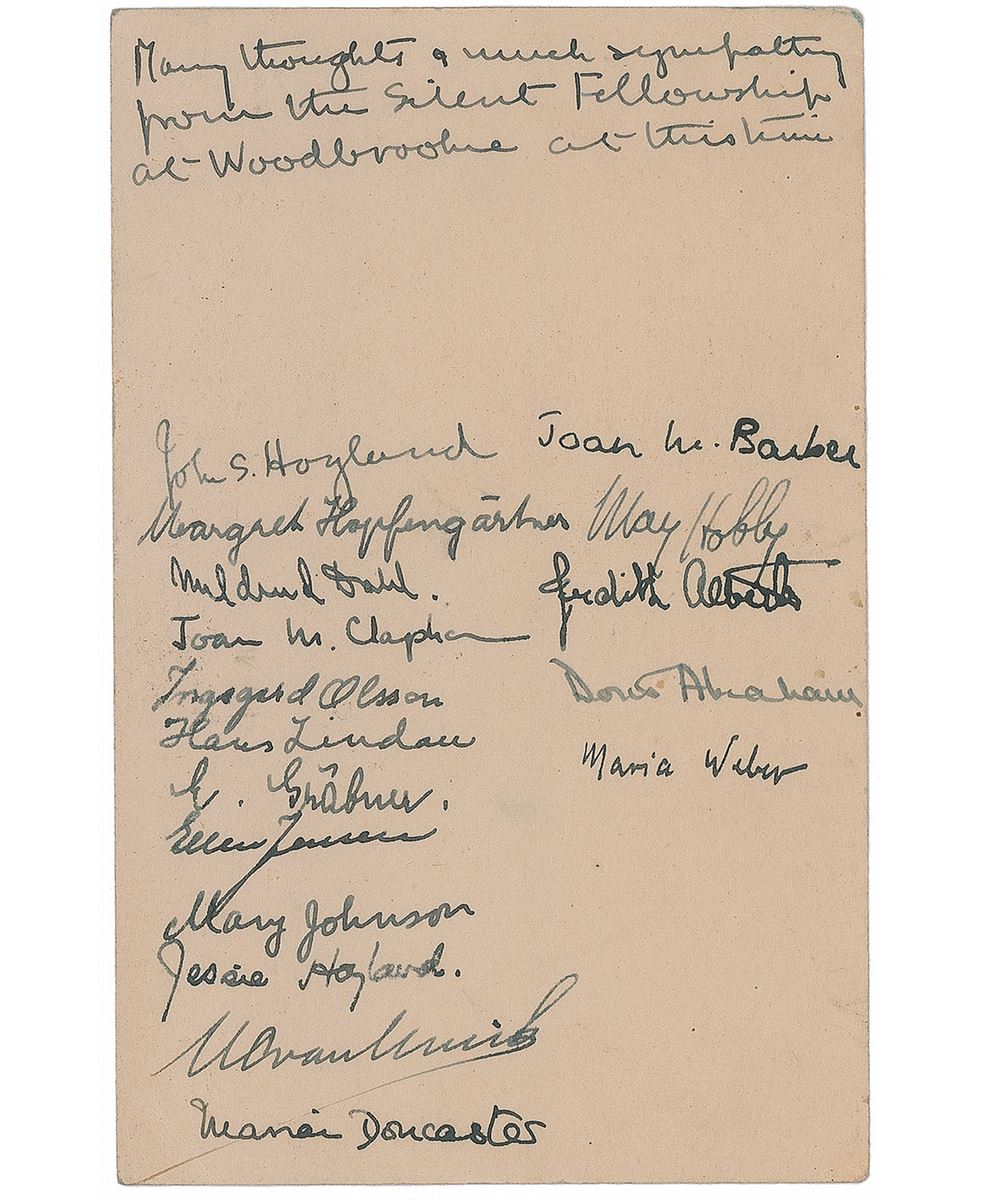 Many thoughts & much sympathy
from the Silent Fellowship
at Woodbrooke at this time
John S. Hoyland
Margret Hopfengärtner
Mildred Dahl.
Joan M. Clapham
Ingegerd Olsson
Hans Lindau
E. Gräbner.
Ellen Jensen
Mary Johnson
Jessie Hoyland.
Marian Doncaster
Joan M. Barber
May Hobbs
Judith Alberts
Doris Abraham
Maria Weber